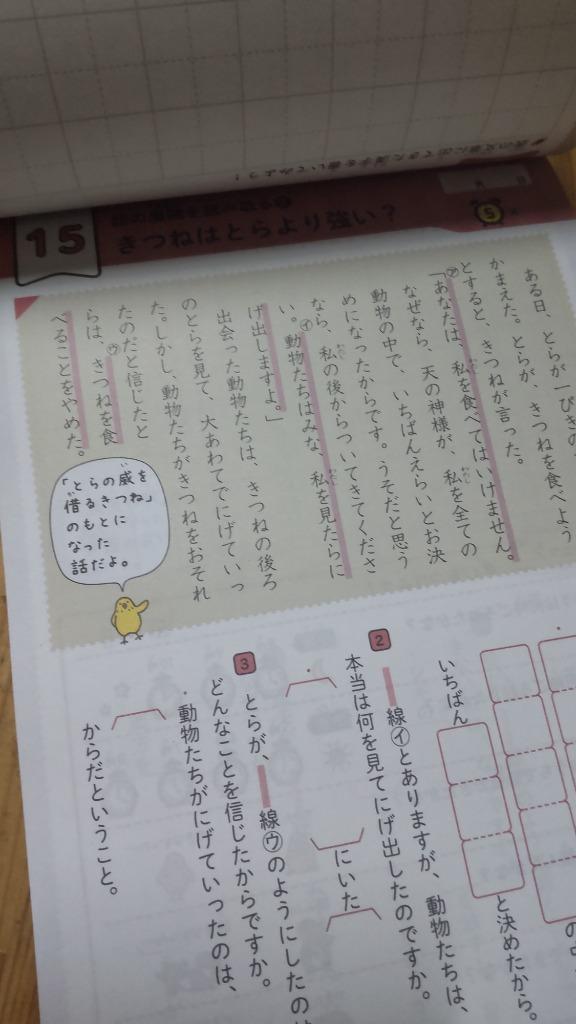 15
きつねはとらより強い？
月
5
ある日、とらが一ぴきの
かまえた。とらが、きつねを食べよう
とすると、きつねが言った。
㋐「あなたは、私を食べてはいけません。
なぜなら、天の神様が、私を全ての
動物の中で、いちばんえらいとお決
めになったからです。うそだと思う
なら、私の後からついてきてくださ
い。㋑動物たちはみな、私を見たらに
げ出しますよ。」
出会った動物たちは、きつねの後ろ
のとらを見て、大あわてでにげていっ
た。しかし、動物たちがきつねをおそれ
たのだと信じたと
らは、㋒きつねを食
べることをやめた。
「とらの威を
借るきつね」
のもとに
なった
話だよ。
いちばん
と決めたから。
2
線㋑とありますが、動物たちは、
本当は何を見てにげ出したのですか。
にいた
3
とらが、線㋒のようにしたの
どんなことを信じたからですか。
・動物たちがにげていったのは、
からだということ。